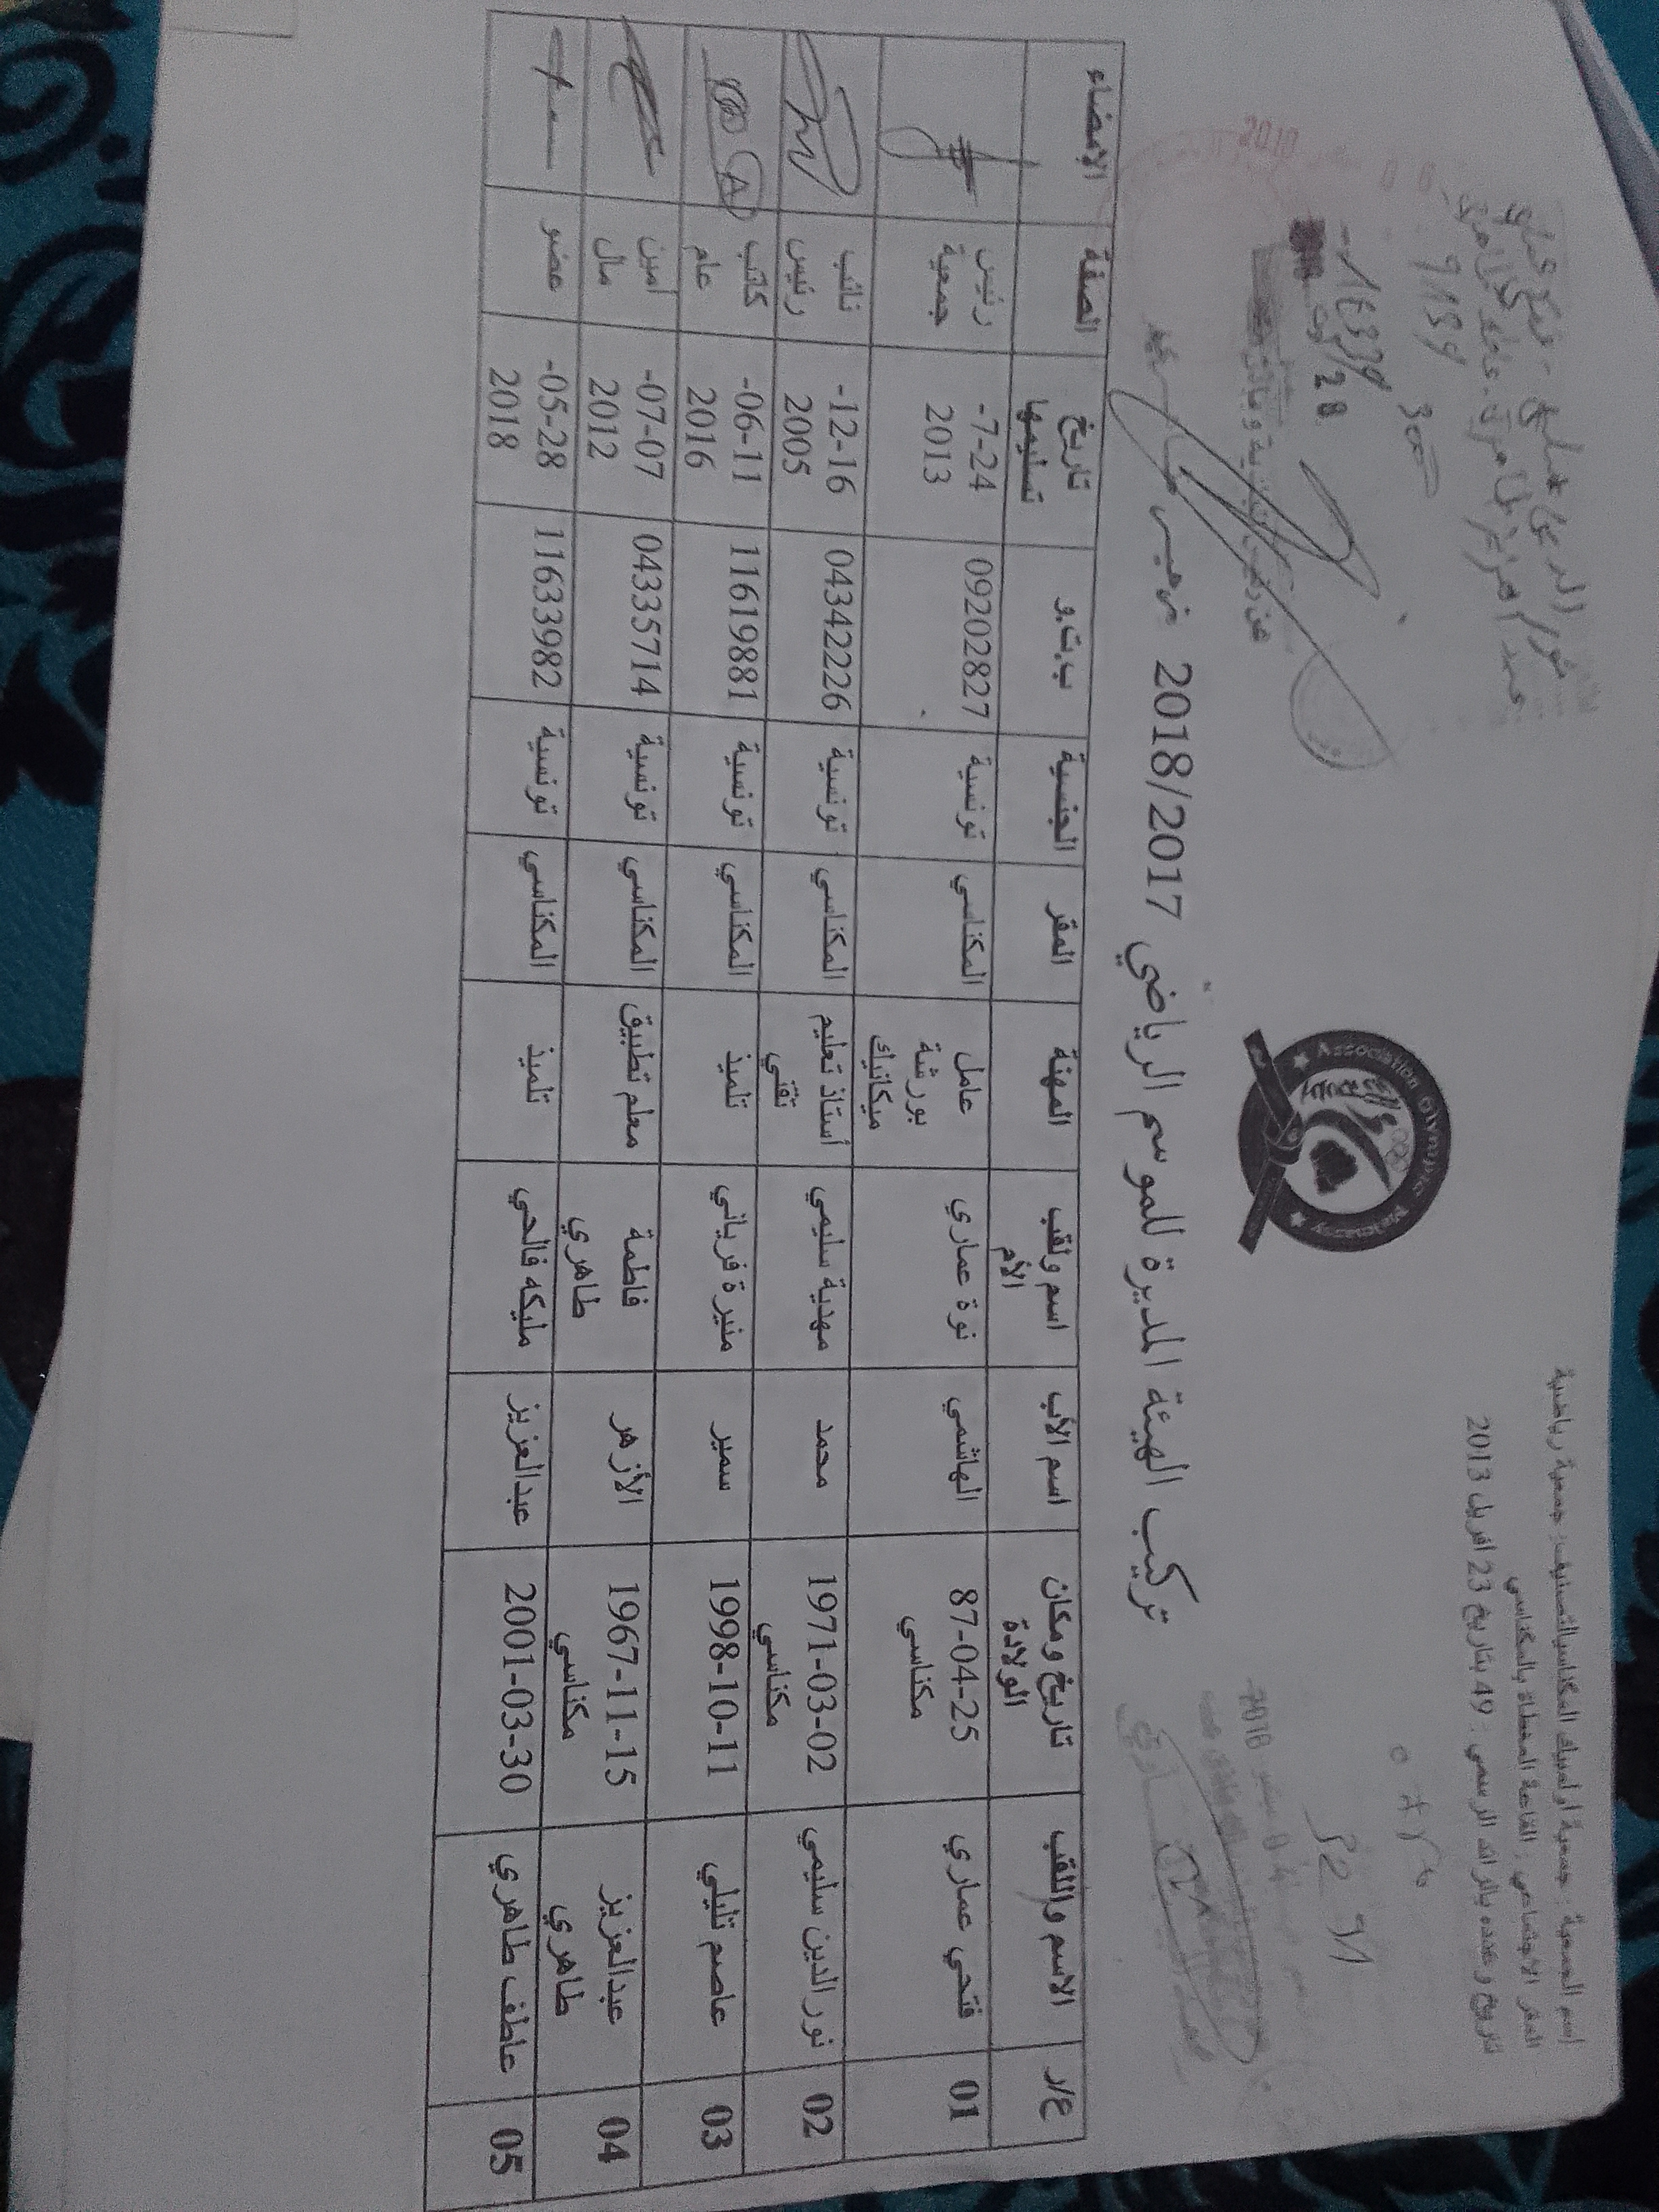 اسم الجمعية : جمعية اولمبيك المكناسي التصنيف : جمعية رياضية
المقر الاجتماعي : القاعة المغطاة بالمكناسي
تاريخ وعدده بالرائد الرسمي : 49 بتاريخ 23 افريل 2013
Association Olympic Meknassy
تركيب الهيئة المديرة للموسم الرياضي 2018/2017
ع/ر الاسم واللقب تاريخ ومكان الولادة اسم الأب اسم ولقب الأم المهنة المقر الجنسية ب.ت.و تاريخ تسليمها الصفة الإمضاء
01 فتحي عماري 87-04-25 مكناسي الهاشمي نوة عماري عامل بورشة ميكانيك المكناسي تونسية 09202827 24-7-2013 رئيس جمعية
02 نور الدين سليمي 1971-03-02 مكناسي محمد مهدية سليمي أستاذ تعليم تقني المكناسي تونسية 04342226 16-12-2005 نائب رئيس
03 عاصم تليلي 1998-10-11 سمير منيرة فرياني تلميذ المكناسي تونسية 11619881 11-06-2016 كاتب عام
04 عبدالعزيز طاهري 1967-11-15 مكناسي الأزهر فاطمة طاهري معلم تطبيق المكناسي تونسية 04335714 07-07-2012 أمين مال
05 عاطف طاهري 2001-03-30 عبدالعزيز مليكه فالحي تلميذ المكناسي تونسية 11633982 28-05-2018 عضو